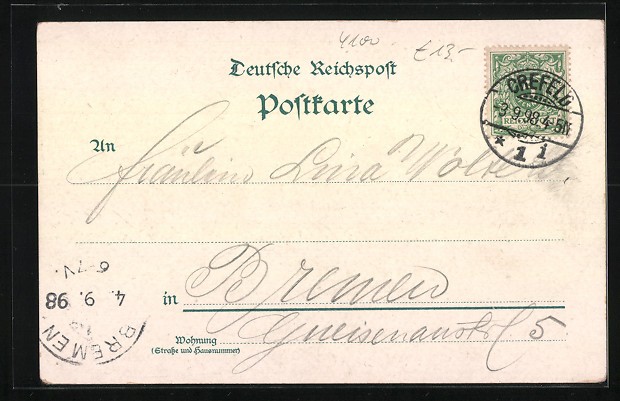 4100
£ 13,-
Deutsche Reichspost
Postkarte
CREFELD
3.9.98.4-5N
* 1 i
An
Fräulein Lina Wolters.
in Bremen
Wohnung
(Straße und Hausnummer)
Gneisenaustr. 5
BREMEN
4. 9. 98
6-7V.